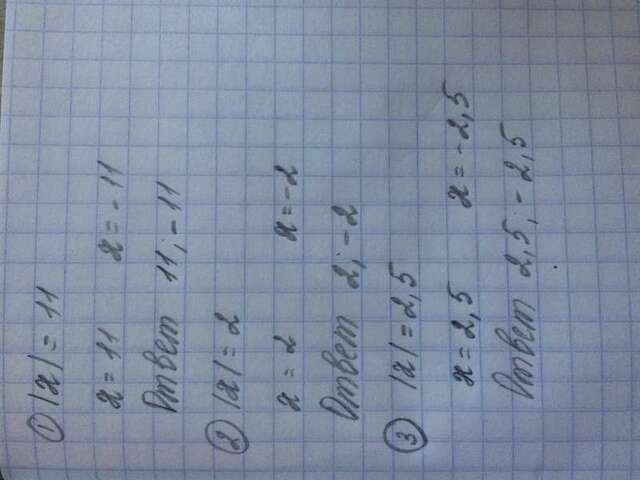 ① |x| = 11
x = 11 x = -11
Ответ 11; -11
② |x| = 2
x = 2 x = -2
Ответ 2; -2
③ |x| = 2,5
x = 2,5 x = -2,5
Ответ 2,5; -2,5